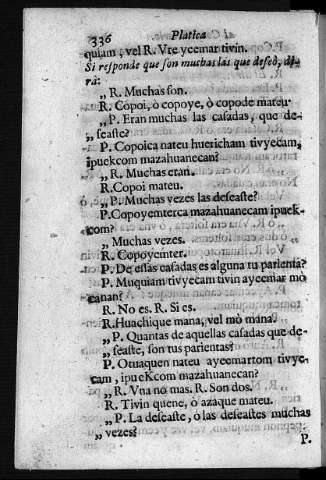 336 Platica
quiam; vel R. Vre ycemar tivin.
Si responde que son muchas las que deseò, di-
rà:
„ R. Muchas son.
R. Copoi, ò copoye, ò copode mateu.
„ P. Eran muchas las casadas, que de-
„ seaste?
P. Copoica nateu huericham tivyecam,
ipuekcom mazahuanecan?
„ R. Muchas eran.
R. Copoi mateu.
„ P. Muchas vezes las deseaste?
P. Copoyemterca mazahuanecam ipuek-
com?
„ Muchas vezes.
R. Copoyemter.
P. De essas casadas es alguna tu parienta?
P. Muquiam tivyecam tivin aycemar mò
canan?
R. No es. R. Si es.
R. Huachique mana, vel mò mana.
„ P. Quantas de aquellas casadas que de-
„ seaste, son tus parientas?
P. Otuaquen nateu ayeemartom tivye-
cam, ipueKcom mazahuanecam?
„ R. Vna no mas. R. Son dos.
R. Tivin quene, ò azaque mateu.
„ P. La deseaste, ò las deseastes muchas
„ vezes?
P.